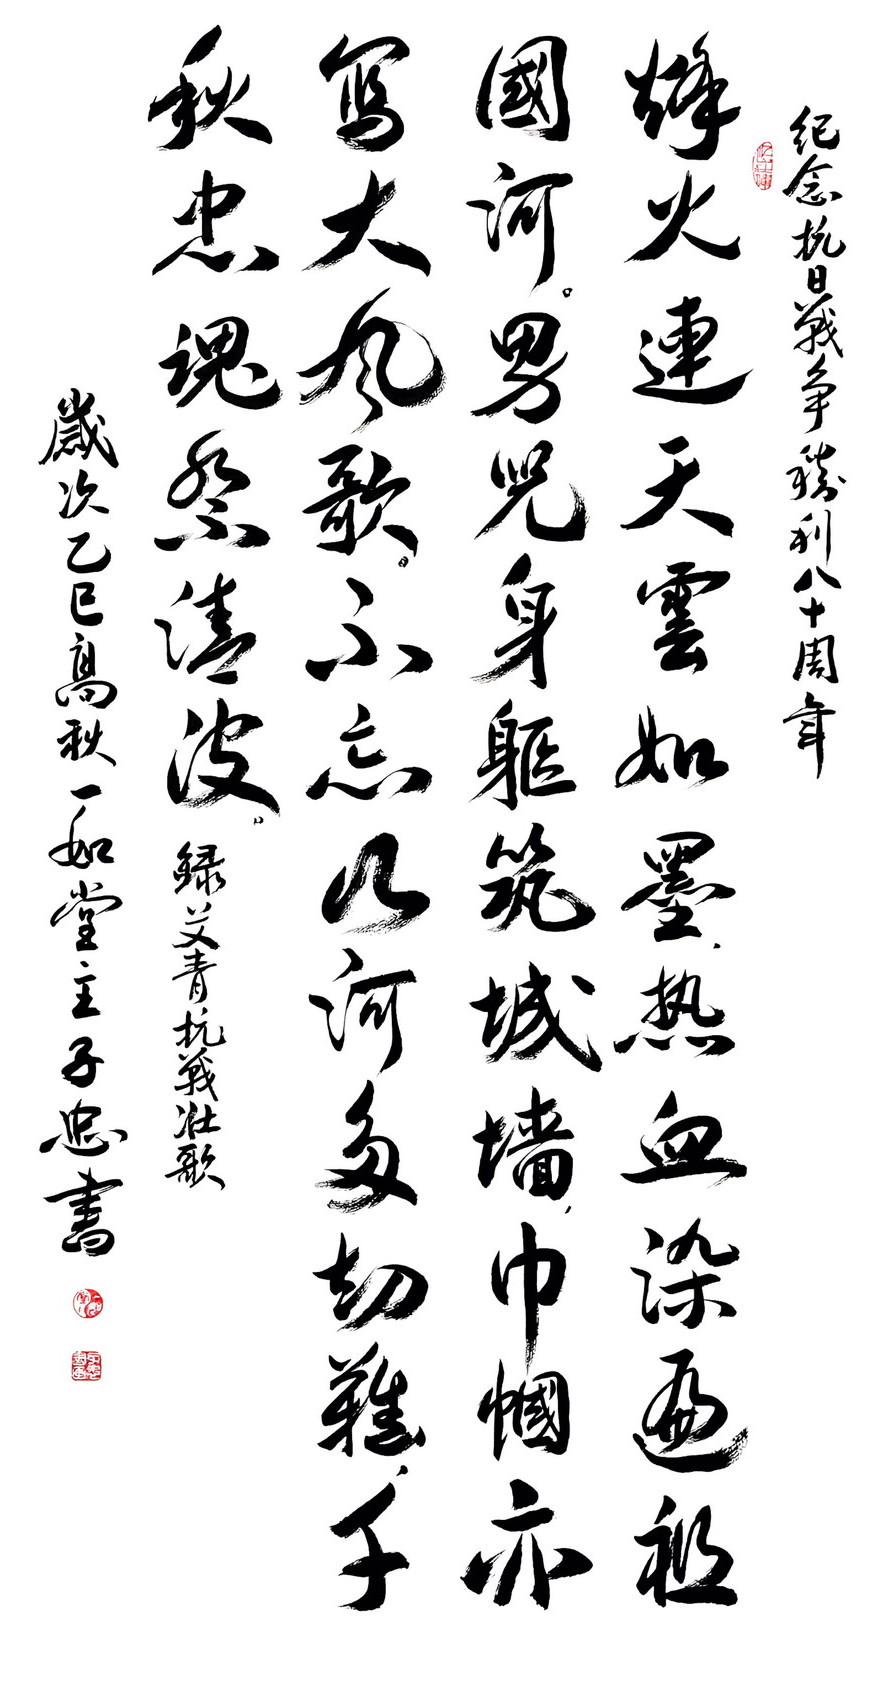 紀念抗日戰爭勝利八十周年
烽火連天雲如墨,热血染遍祖
國河。男兒身軀筑城墙,巾幗亦
寫大风歌。不忘山河多劫難,千
秋忠魂祭清波。
録艾青抗戰壮歌
歲次乙巳高秋一如堂主子忠書